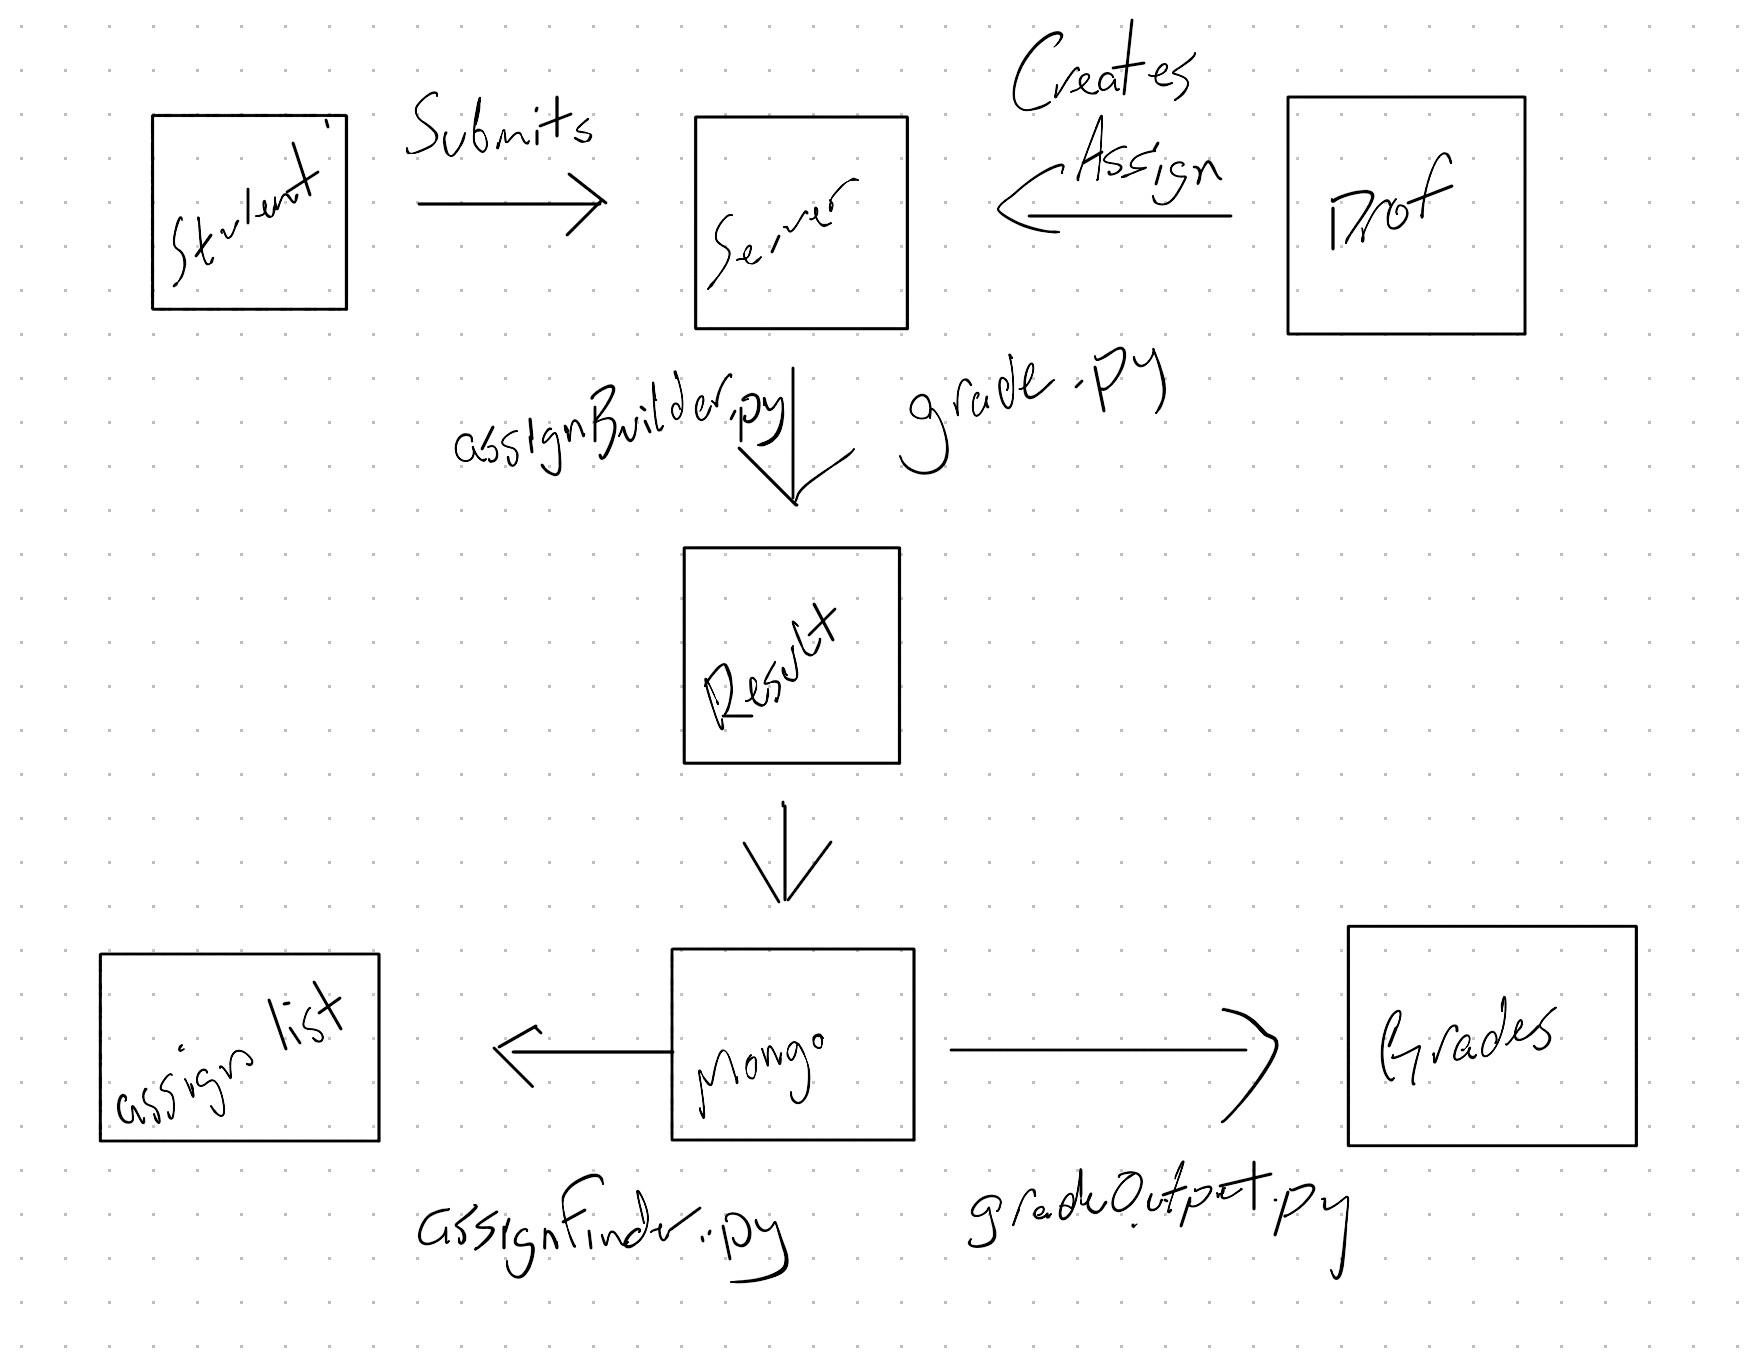 Student
Submits
Server
Creates
Assign
Prof
assignBuilder.py
grade.py
Result
assign list
Mongo
Grades
assignFinder.py
gradeOutput.py